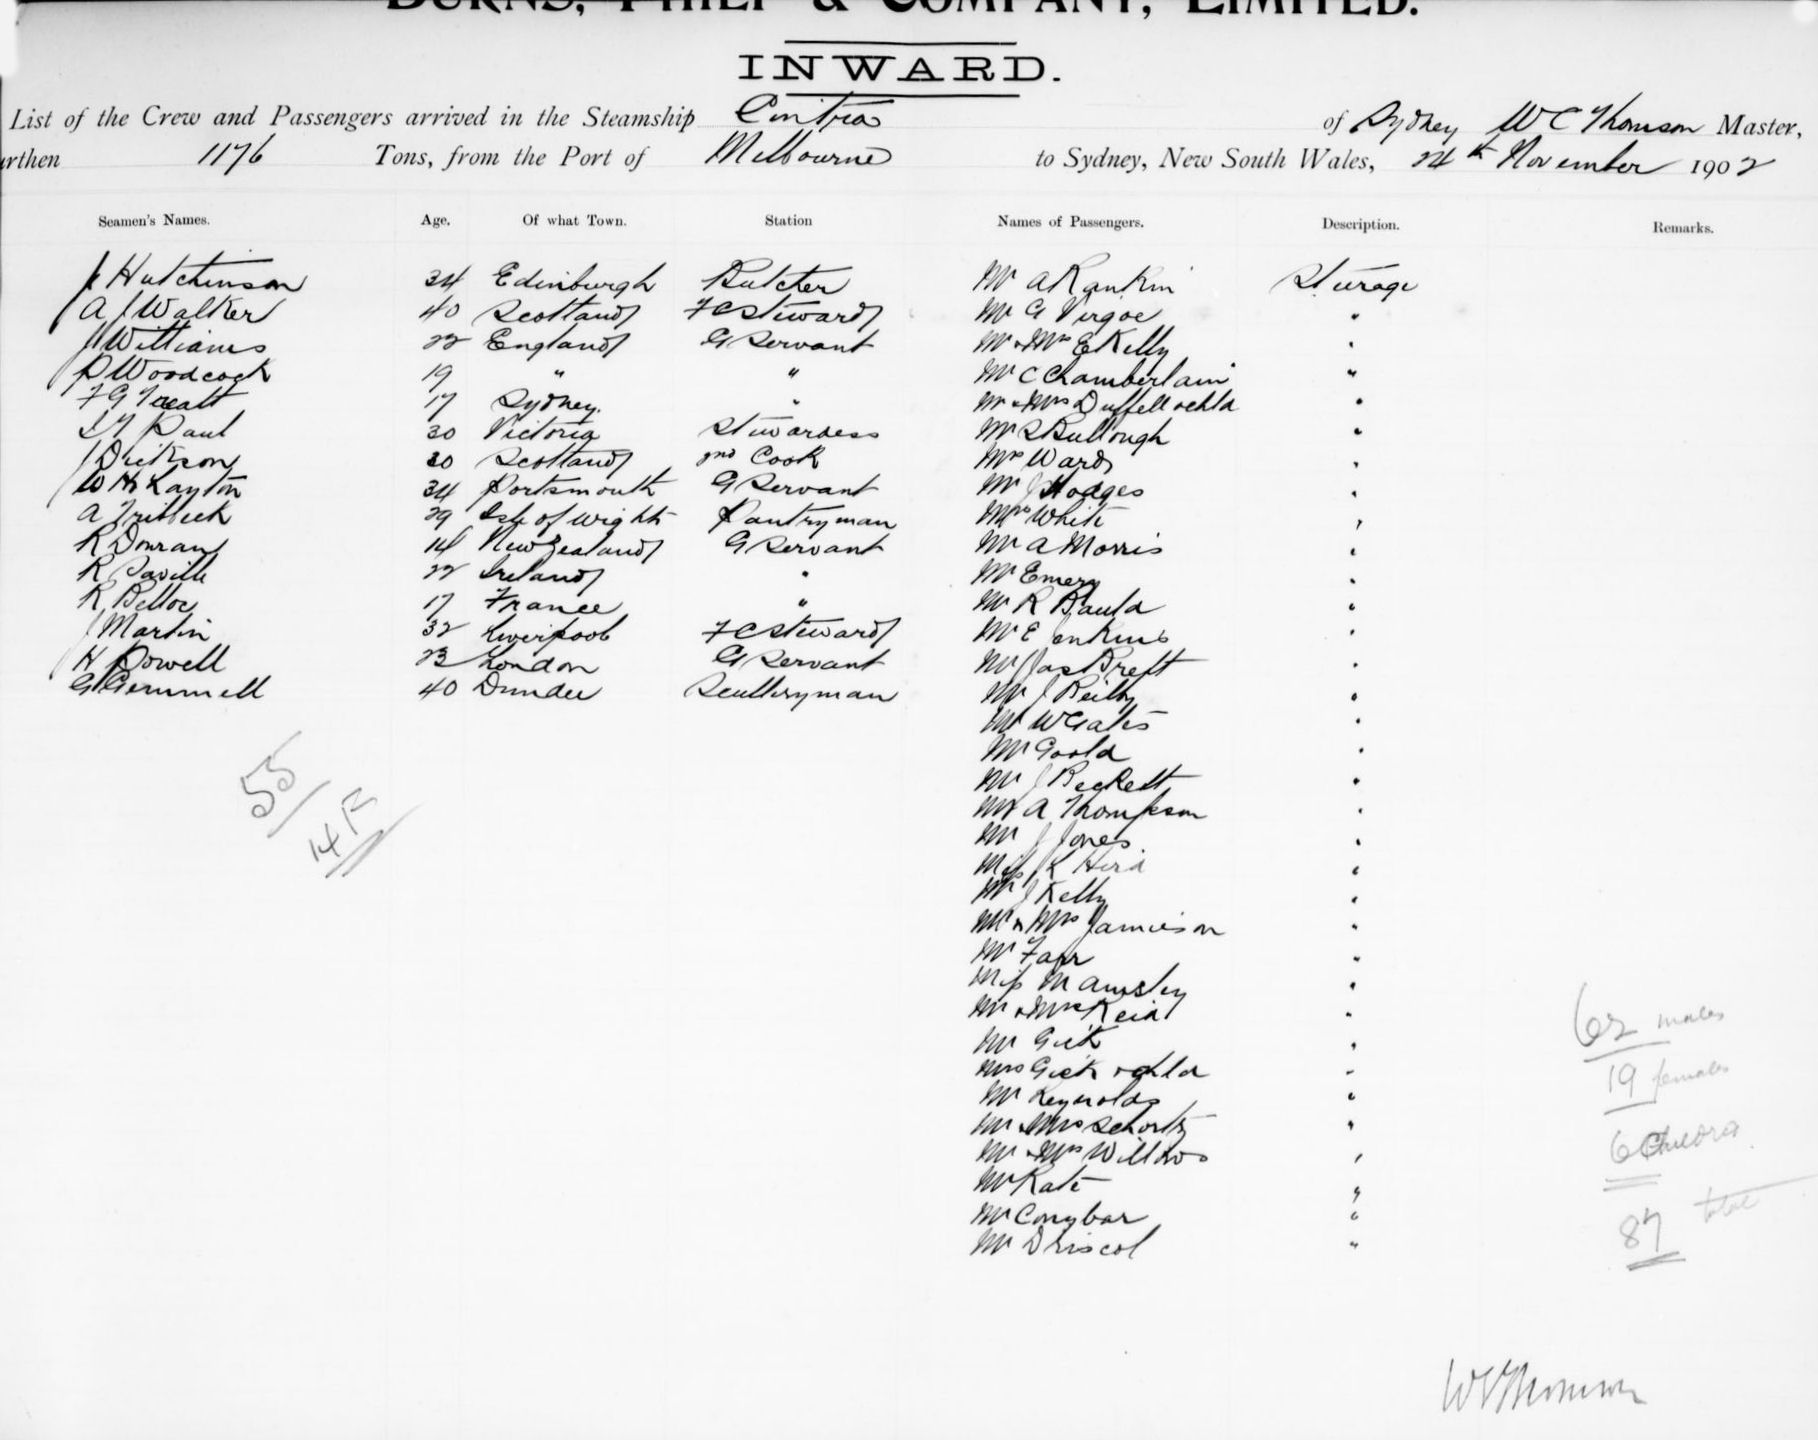 BURNS, PHILP & COMPANY, LIMITED.
INWARD.
List of the Crew and Passengers arrived in the Steamship Cintra of Sydney W C Thomson Master,
urthen 1176 Tons, from the Port of Melbourne to Sydney, New South Wales, 24th November 1902
Seamen's Names. Age. Of what Town. Station Names of Passengers. Description. Remarks.
J Hutchinson 34 Edinburgh Butcher Mr A Rankin Steerage
A J Walker 40 Scotland F C Steward Mr G Virgoe "
J Williams 22 England G Servant Mr & Mrs E Kelly "
P Woodcock 19 " " Mr C Chamberlain "
F G 17 Sydney. " Mr & Mrs Duffell & chld "
Paul 30 Victoria Stewardess Mr S Bullough "
J Dickson 30 Scotland 2nd Cook Mrs Ward "
W H Layton 34 Portsmouth G Servant Mr J Hodges "
A Tribeck 29 Isle of Wight Pantryman Mrs White "
R Dowran 14 New Zealand G Servant Mr A Morris "
R Saville 22 Ireland " Mr Emery "
R Belloc 17 France " Mr R Bauld "
J Martin 32 Liverpool F C Steward Mr E Jenkins "
H Powell 23 London G Servant Mr Jas Brett "
G Gemmell 40 Dundee Sculleryman Mr J Reilly "
Mr W Gates "
Mr Goold "
Mr J Beckett "
Mr A Thompson "
Mr J Jones "
Miss K Hird "
Mr J Kelly "
Mr & Mrs Jamieson "
Mr Farr "
Miss M Amsley "
Mr & Mrs Reid "
Mr Gick "
Mrs Gick & chld "
Mr Reynolds "
Mr & Mrs Schortz "
Mr & Mrs Willows "
Mr Kate "
Mr Conybar "
Mr Driscol "
55
14 F
62 males
19 females
6 Children
87 total
W C Thomson